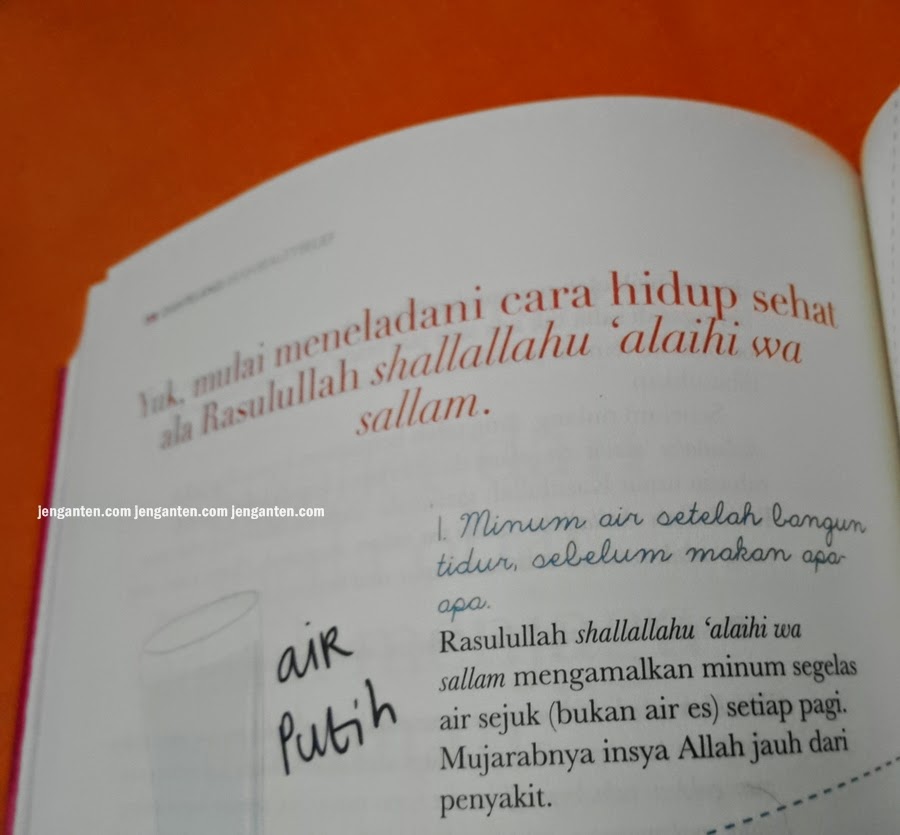 Yuk, mulai meneladani cara hidup sehat
ala Rasulullah shallallahu ‘alaihi wa
sallam.
jenganten.com jenganten.com jenganten.com
1. Minum air setelah bangun
tidur, sebelum makan apa-
apa.
air
putih
Rasulullah shallallahu ‘alaihi wa
sallam mengamalkan minum segelas
air sejuk (bukan air es) setiap pagi.
Mujarabnya insya Allah jauh dari
penyakit.